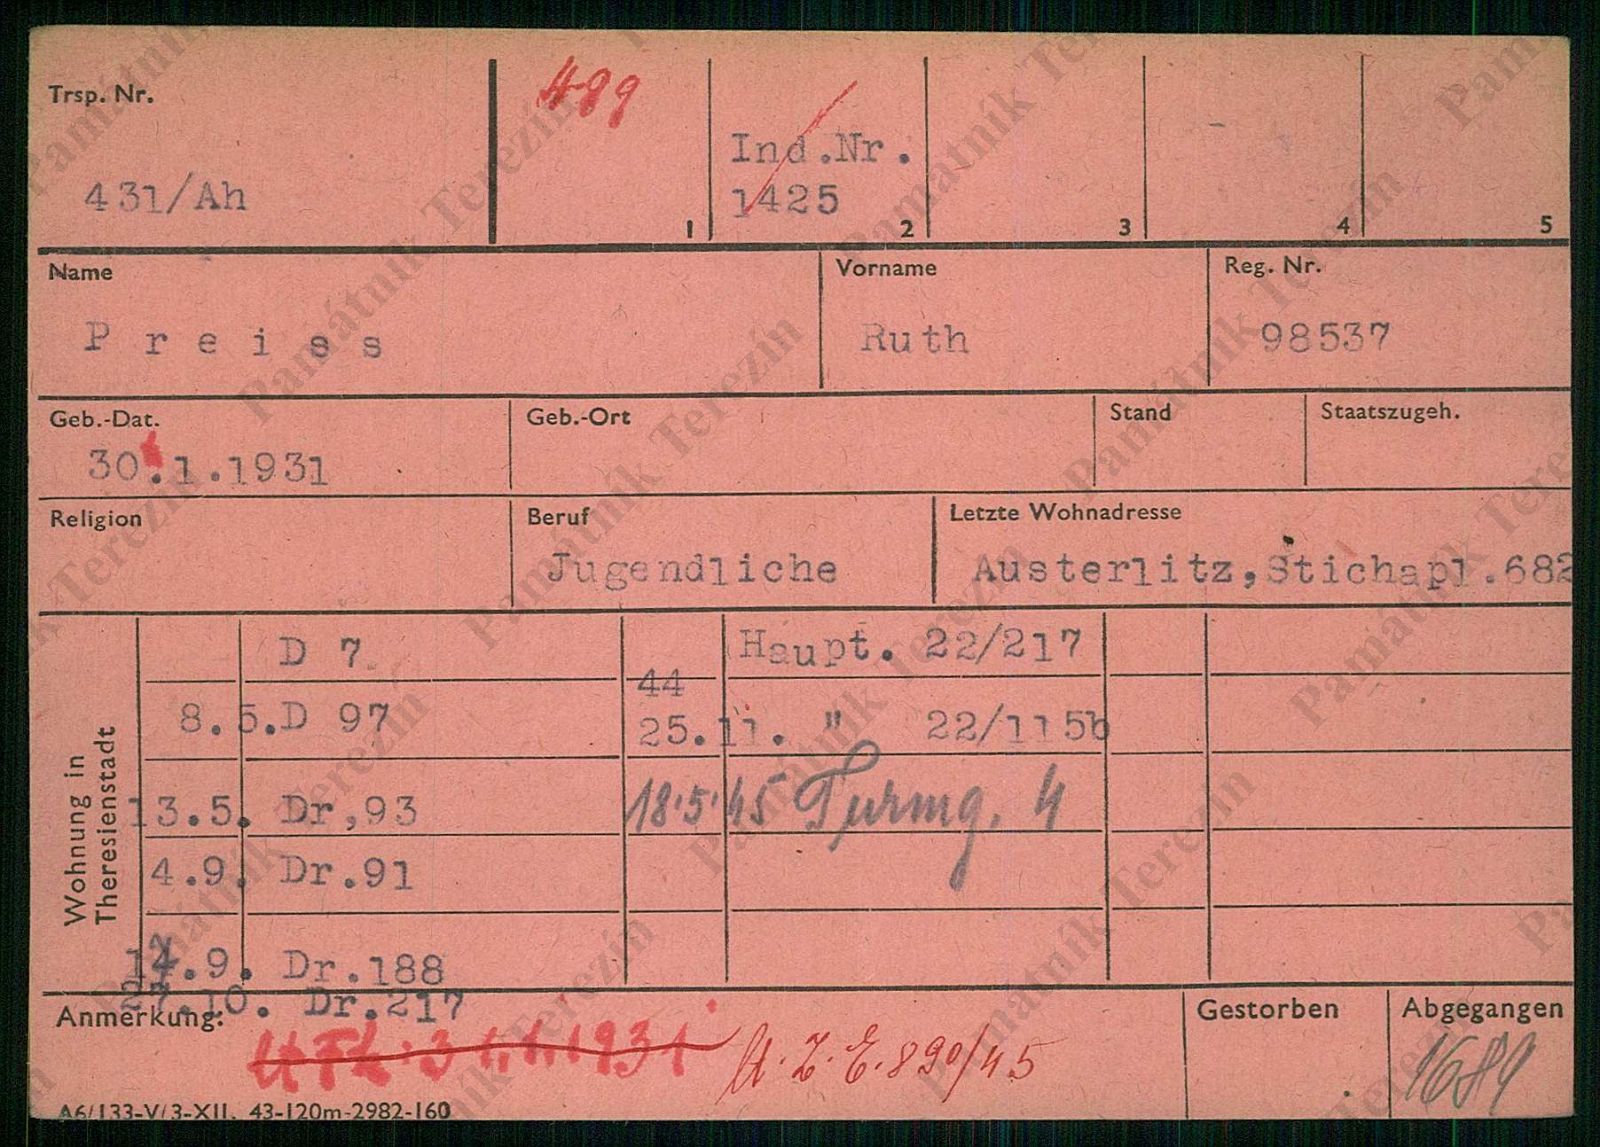 Trsp. Nr.
431/Ah
489
1
Ind.Nr.
1425
2
3
4
5
Name
Preiss
Vorname
Ruth
Reg. Nr.
98537
Geb.-Dat.
30.1.1931
Geb.-Ort
Stand
Staatszugeh.
Religion
Beruf
Jugendliche
Letzte Wohnadresse
Austerlitz,Stichapl.682
Wohnung in
Theresienstadt
D 7
8.5. D 97
13.5. Dr,93
4.9. Dr.91
14.9. Dr.188
27.10. Dr.217
Haupt. 22/217
44
25.11. " 22/115b
18.5.45 Turmg. 4
Anmerkung:
31.1.1931
U.Z.E.890/45
Gestorben
Abgegangen
1689
A6/133-V/3-XII. 43-120m-2982-160
Památník Terezín